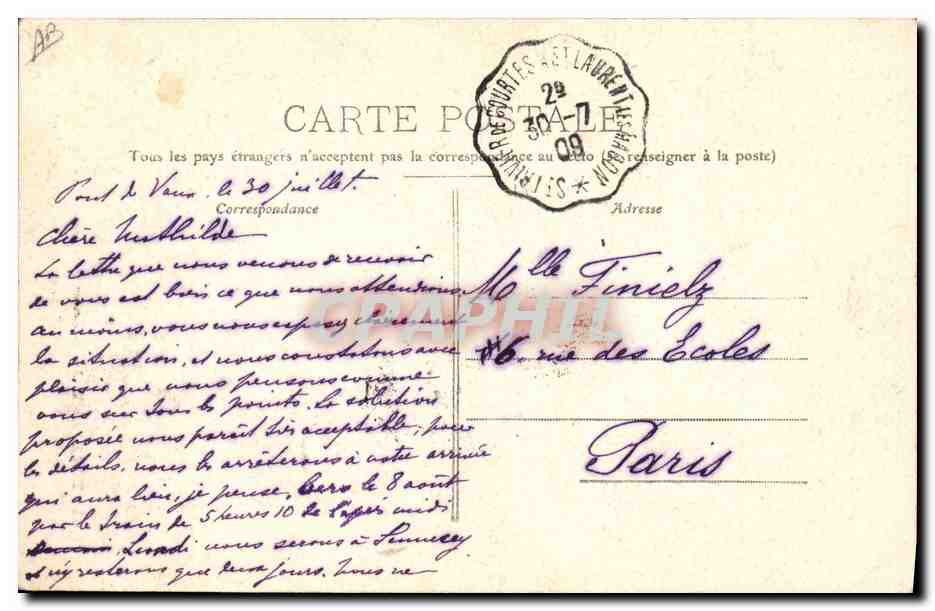 AB
ST TRIVIER DE COURTES A ST LAURENT LES MACON
2e
30-7
09
CARTE POSTALE
Tous les pays étrangers n'acceptent pas la correspondance au recto (se renseigner à la poste)
Pont de Vaux, le 30 juillet.
Correspondance
Adresse
Chère Mathilde
La lettre que nous venons de recevoir
de vous est bien ce que nous attendions
au moins, vous nous exposez clairement
la situation, et nous constatons avec
plaisir que nous pensons comme
vous sur tous les points. La solution
proposée nous paraît très acceptable; pour
les détails, nous les arrêterons à votre arrivée
qui aura lieu, je pense, vers le 8 août
par le train de 5 heures 10 de l'après midi
Lundi nous serons à Sennecey
et n'y resterons que deux jours. Nous ne
Mlle Finielz
16 rue des Ecoles
Paris
CPAPHIL